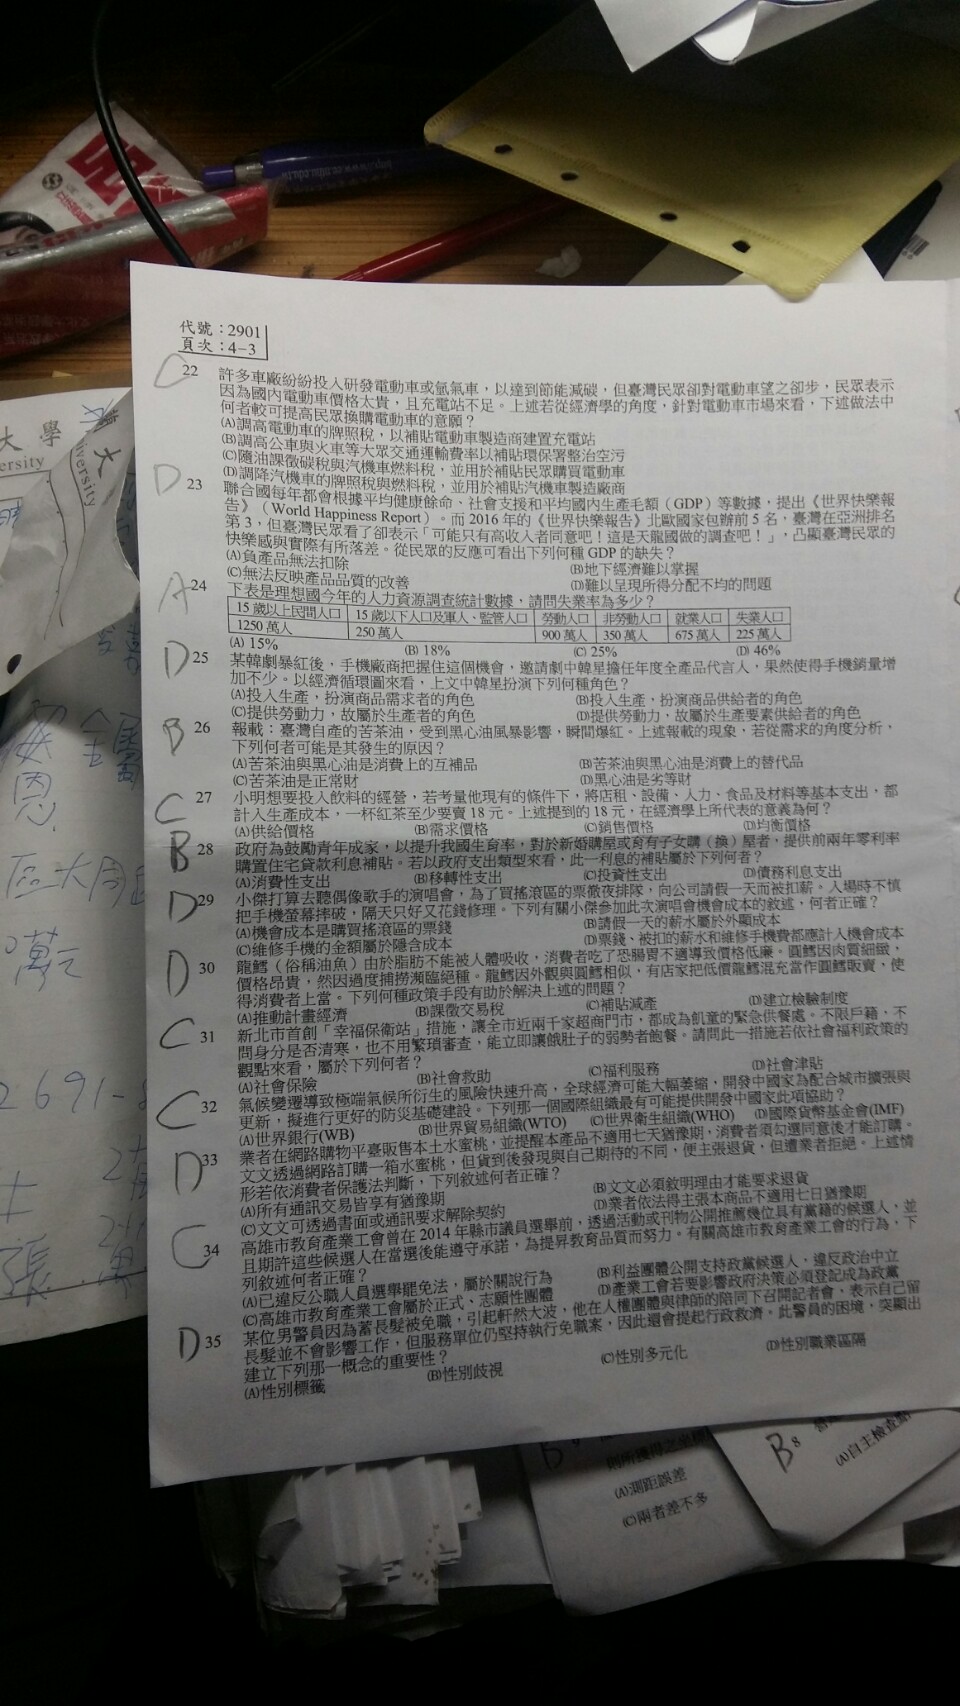 代號：2901
頁次：4-3
C 22 許多車廠紛紛投入研發電動車或氫氣車，以達到節能減碳，但臺灣民眾卻對電動車望之卻步，民眾表示
因為國內電動車價格太貴，且充電站不足。上述若從經濟學的角度，針對電動車市場來看，下述做法中
何者較可提高民眾換購電動車的意願？
(A)調高電動車的牌照稅，以補貼電動車製造商建置充電站
(B)調高公車與火車等大眾交通運輸費率以補貼環保署整治空污
(C)隨油課徵碳稅與汽機車燃料稅，並用於補貼民眾購買電動車
(D)調降汽機車的牌照稅與燃料稅，並用於補貼汽機車製造廠商
D 23 聯合國每年都會根據平均健康餘命、社會支援和平均國內生產毛額（GDP）等數據，提出《世界快樂報
告》（World Happiness Report）。而 2016 年的《世界快樂報告》北歐國家包辦前 5 名，臺灣在亞洲排名
第 3，但臺灣民眾看了卻表示「可能只有高收入者同意吧！這是天龍國做的調查吧！」，凸顯臺灣民眾的
快樂感與實際有所落差。從民眾的反應可看出下列何種 GDP 的缺失？
(A)負產品無法扣除 (B)地下經濟難以掌握
(C)無法反映產品品質的改善 (D)難以呈現所得分配不均的問題
A 24 下表是理想國今年的人力資源調查統計數據，請問失業率為多少？
15 歲以上民間人口 15 歲以下人口及軍人、監管人口 勞動人口 非勞動人口 就業人口 失業人口
1250 萬人 250 萬人 900 萬人 350 萬人 675 萬人 225 萬人
(A) 15% (B) 18% (C) 25% (D) 46%
D 25 某韓劇暴紅後，手機廠商把握住這個機會，邀請劇中韓星擔任年度全產品代言人，果然使得手機銷量增
加不少。以經濟循環圖來看，上文中韓星扮演下列何種角色？
(A)投入生產，扮演商品需求者的角色 (B)投入生產，扮演商品供給者的角色
(C)提供勞動力，故屬於生產者的角色 (D)提供勞動力，故屬於生產要素供給者的角色
B 26 報載：臺灣自產的苦茶油，受到黑心油風暴影響，瞬間爆紅。上述報載的現象，若從需求的角度分析，
下列何者可能是其發生的原因？
(A)苦茶油與黑心油是消費上的互補品 (B)苦茶油與黑心油是消費上的替代品
(C)苦茶油是正常財 (D)黑心油是劣等財
C 27 小明想要投入飲料的經營，若考量他現有的條件下，將店租、設備、人力、食品及材料等基本支出，都
計入生產成本，一杯紅茶至少要賣 18 元。上述提到的 18 元，在經濟學上所代表的意義為何？
(A)供給價格 (B)需求價格 (C)銷售價格 (D)均衡價格
B 28 政府為鼓勵青年成家，以提升我國生育率，對於新婚購屋或育有子女購（換）屋者，提供前兩年零利率
購置住宅貸款利息補貼。若以政府支出類型來看，此一利息的補貼屬於下列何者？
(A)消費性支出 (B)移轉性支出 (C)投資性支出 (D)債務利息支出
D 29 小傑打算去聽偶像歌手的演唱會，為了買搖滾區的票徹夜排隊，向公司請假一天而被扣薪。入場時不慎
把手機螢幕摔破，隔天只好又花錢修理。下列有關小傑參加此次演唱會機會成本的敘述，何者正確？
(A)機會成本是購買搖滾區的票錢 (B)請假一天的薪水屬於外顯成本
(C)維修手機的金額屬於隱含成本 (D)票錢、被扣的薪水和維修手機費都應計入機會成本
D 30 龍鱈（俗稱油魚）由於脂肪不能被人體吸收，消費者吃了恐腸胃不適導致價格低廉。圓鱈因肉質細緻，
價格昂貴，然因過度捕撈瀕臨絕種。龍鱈因外觀與圓鱈相似，有店家把低價龍鱈混充當作圓鱈販賣，使
得消費者上當。下列何種政策手段有助於解決上述的問題？
(A)推動計畫經濟 (B)課徵交易稅 (C)補貼減產 (D)建立檢驗制度
C 31 新北市首創「幸福保衛站」措施，讓全市近兩千家超商門市，都成為飢童的緊急供餐處。不限戶籍，不
問身分是否清寒，也不用繁瑣審查，能立即讓餓肚子的弱勢者飽餐。請問此一措施若依社會福利政策的
觀點來看，屬於下列何者？
(A)社會保險 (B)社會救助 (C)福利服務 (D)社會津貼
C 32 氣候變遷導致極端氣候所衍生的風險快速升高，全球經濟可能大幅萎縮，開發中國家為配合城市擴張與
更新，擬進行更好的防災基礎建設。下列那一個國際組織最有可能提供開發中國家此項協助？
(A)世界銀行(WB) (B)世界貿易組織(WTO) (C)世界衛生組織(WHO) (D)國際貨幣基金會(IMF)
D 33 業者在網路購物平臺販售本土水蜜桃，並提醒本產品不適用七天猶豫期，消費者須勾選同意後才能訂購。
文文透過網路訂購一箱水蜜桃，但貨到後發現與自己期待的不同，便主張退貨，但遭業者拒絕。上述情
形若依消費者保護法判斷，下列敘述何者正確？
(A)所有通訊交易皆享有猶豫期 (B)文文必須敘明理由才能要求退貨
(C)文文可透過書面或通訊要求解除契約 (D)業者依法得主張本商品不適用七日猶豫期
C 34 高雄市教育產業工會曾在 2014 年縣市議員選舉前，透過活動或刊物公開推薦幾位具有黨籍的候選人，並
且期許這些候選人在當選後能遵守承諾，為提昇教育品質而努力。有關高雄市教育產業工會的行為，下
列敘述何者正確？
(A)已違反公職人員選舉罷免法，屬於關說行為 (B)利益團體公開支持政黨候選人，違反政治中立
(C)高雄市教育產業工會屬於正式、志願性團體 (D)產業工會若要影響政府決策必須登記成為政黨
D 35 某位男警員因為蓄長髮被免職，引起軒然大波，他在人權團體與律師的陪同下召開記者會，表示自己留
長髮並不會影響工作，但服務單位仍堅持執行免職案，因此還會提起行政救濟。此警員的困境，突顯出
建立下列那一概念的重要性？
(A)性別標籤 (B)性別歧視 (C)性別多元化 (D)性別職業區隔
大學
ersity
大
versity
恩
萬元
2691-
張
B 9
(A)測距誤差
(C)兩者差不多
B 8
(A)自主檢查